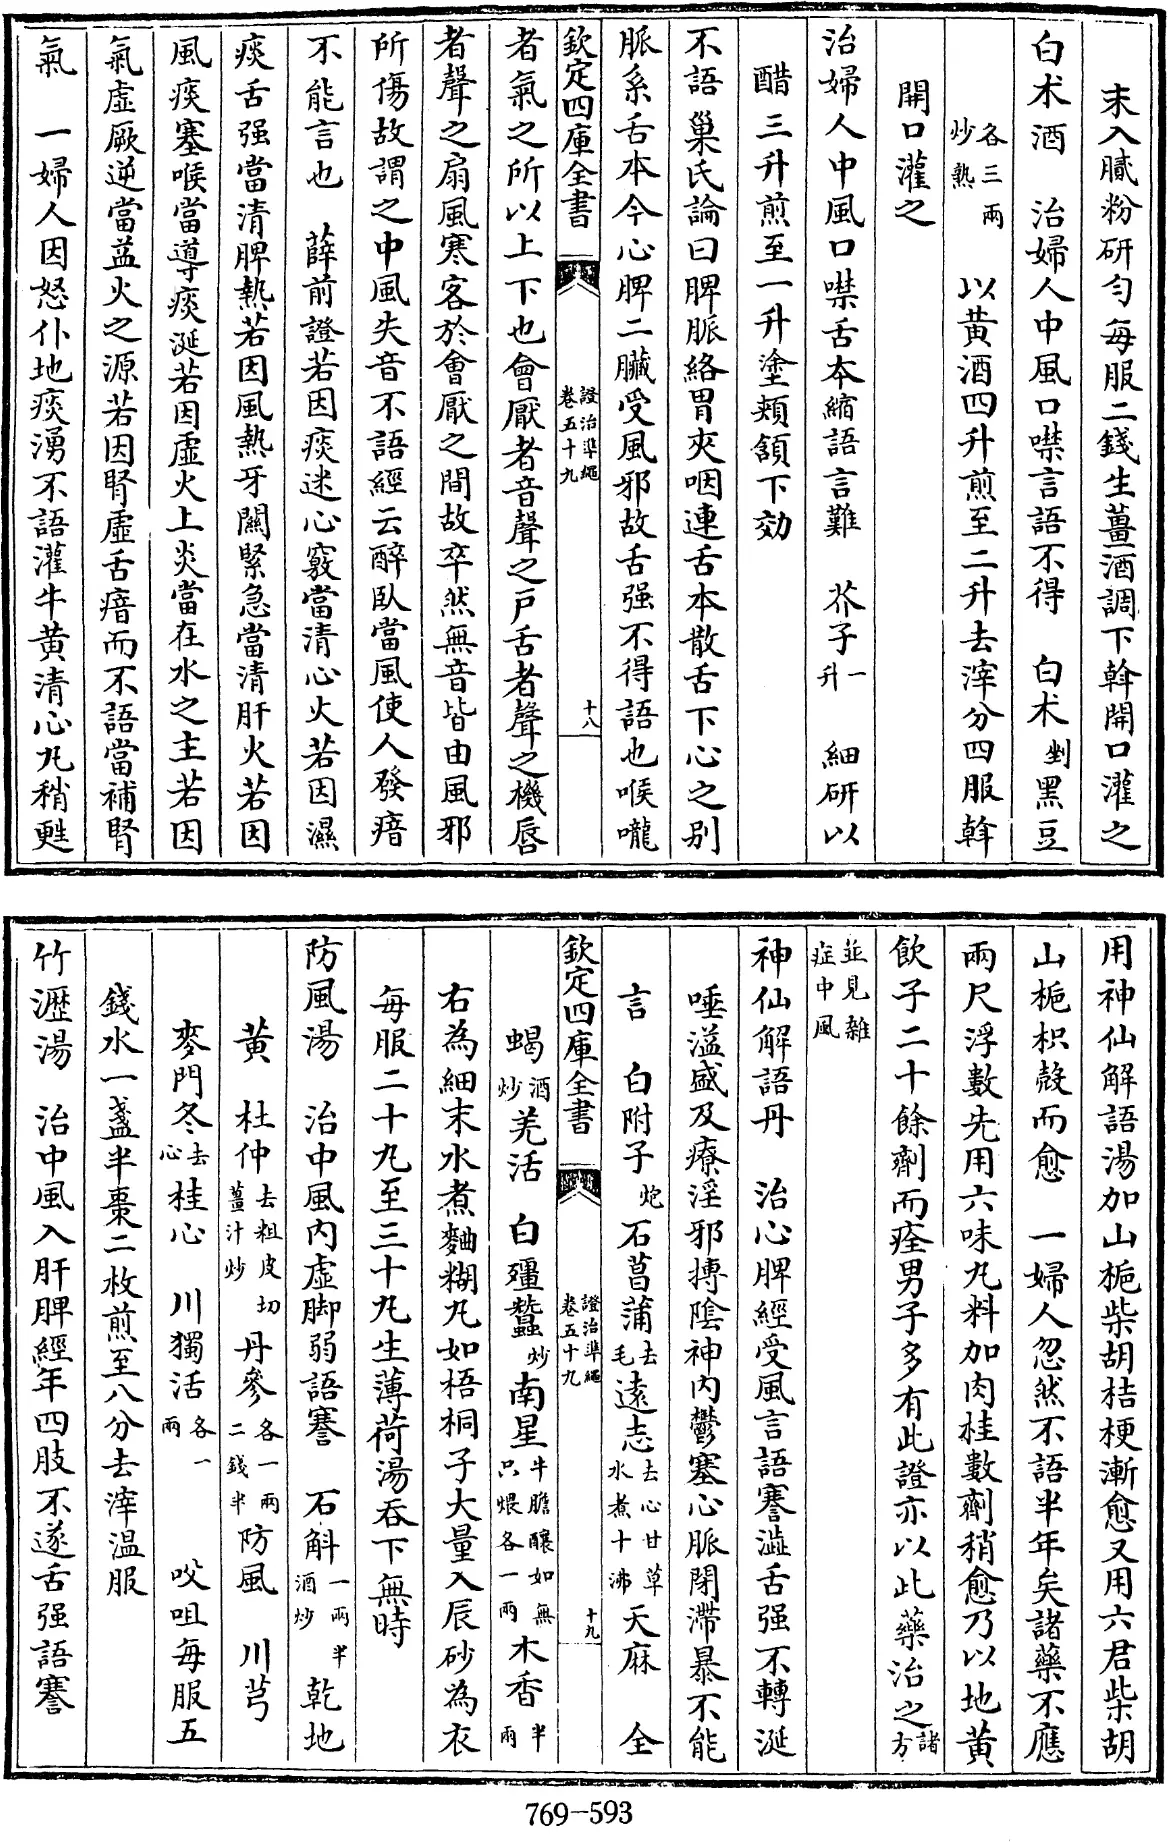 末入膩粉研勻每服二錢生薑酒調下斡開口灌之
白术酒　治婦人中風口噤言語不得　白术剉黑豆
各三兩炒熟　以黄酒四升煎至二升去滓分四服斡
開口灌之
治婦人中風口噤舌本縮語言難　芥子一升　細研以
醋三升煎至一升塗頰頷下効
不語　巢氏論曰脾脈絡胃夾咽連舌本散舌下心之别
脈系舌本今心脾二臟受風邪故舌强不得語也喉嚨
欽定四庫全書　證治凖繩卷五十九　十八
者氣之所以上下也會厭者音聲之戸舌者聲之機唇
者聲之扇風寒客於會厭之間故卒然無音皆由風邪
所傷故謂之中風失音不語經云醉臥當風使人發瘖
不能言也　薛前證若因痰迷心竅當清心火若因濕
痰舌强當清脾熱若因風熱牙關緊急當清肝火若因
風痰塞喉當導痰涎若因虚火上炎當在水之主若因
氣虚厥逆當益火之源若因腎虚舌瘖而不語當補腎
氣　一婦人因怒仆地痰湧不語灌牛黄清心丸稍甦
用神仙解語湯加山梔柴胡桔梗漸愈又用六君柴胡
山梔枳殻而愈　一婦人忽然不語半年矣諸藥不應
兩尺浮數先用六味丸料加肉桂數劑稍愈乃以地黄
飲子二十餘劑而痊男子多有此證亦以此藥治之諸方
並見雜症中風
神仙解語丹　治心脾經受風言語謇澁舌强不轉涎
唾溢盛及療淫邪搏陰神内鬱塞心脈閉滯暴不能
言　白附子炮石菖蒲去毛遠志去心甘草水煮十沸天麻　全
欽定四庫全書　證治凖繩卷五十九　十九
蝎酒炒羌活　白殭蠶炒南星牛膽釀如無只煨各一兩木香半兩
右為細末水煮麯糊丸如梧桐子大量入辰砂為衣
每服二十丸至三十丸生薄荷湯吞下無時
防風湯　治中風内虚脚弱語謇　石斛一兩半酒炒乾地
黄　杜仲去粗皮切薑汁炒丹參各一兩二錢半防風　川芎
麥門冬去心桂心　川獨活各一兩　㕮咀每服五
錢水一盞半棗二枚煎至八分去滓温服
竹瀝湯　治中風入肝脾經年四肢不遂舌强語謇
769-593